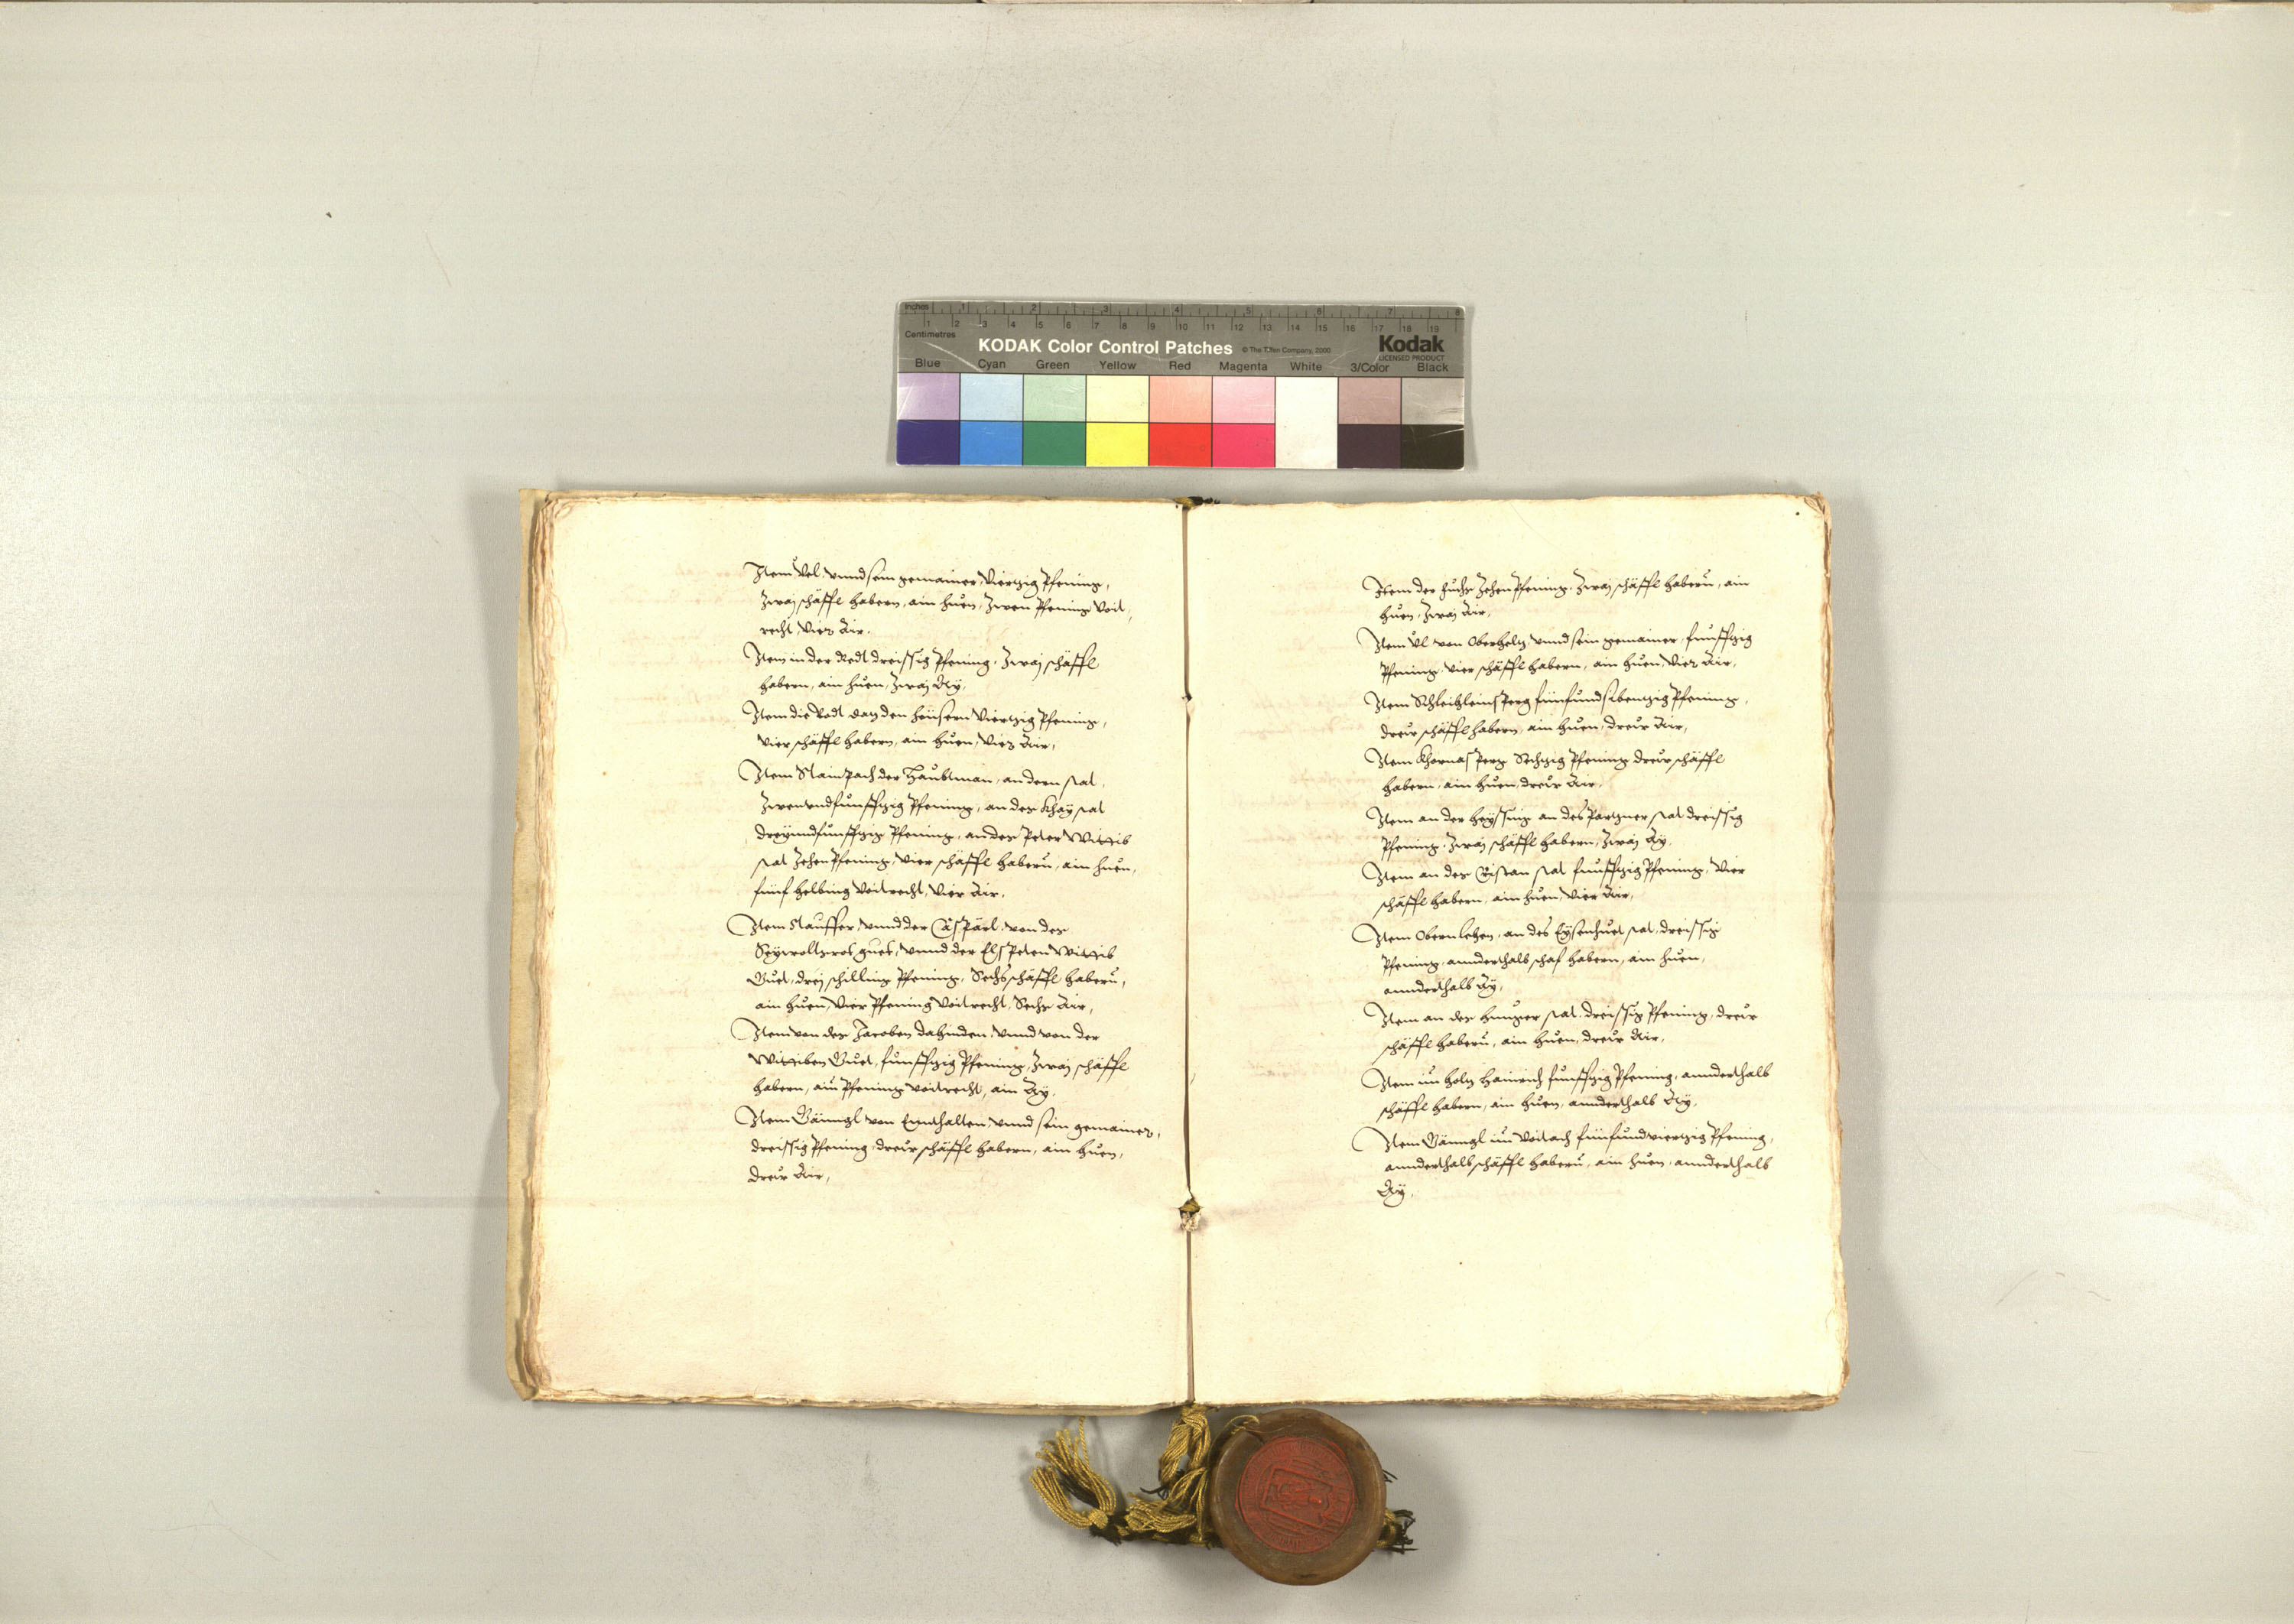 inches 1 2 3 4 5 6 7 8
Centimetres 1 2 3 4 5 6 7 8 9 10 11 12 13 14 15 16 17 18 19
KODAK Color Control Patches © The Tiffen Company, 2000 Kodak
LICENSED PRODUCT
Blue Cyan Green Yellow Red Magenta White 3/Color Black
Item Vel vnnd sein gemainer, Viertzig Pfening,
Zwaj schäffl habern, ain huen, Zwen Pfening Voit
recht, Vier Air.
Item in der Redt dreissig Pfening, Zwaj schäffl
habern, ain huen, Zwaj Ay,
Item die den heüsern Viertzig Pfening,
Vier schäffl habern, ain huen, Vier Air,
Item Stainpach der Haubtman, an dern stat
Zwenundfunfftzig Pfening, an der Khay stat
dreyundfunfftzig Pfening, an der Peter Wittib
stat Zehen Pfening, Vier schäffl habern, ain huen,
funf helbing Voitrecht, Vier Air.
Item Stauffer, vnnd der Cäspärl, von der
guet, vnnd der Elspeten Wittib
Guet, drej schilling Pfening, Sechs schäffl habern,
ain huen, Vier Pfening Voitrecht, Sechs Air,
Item von der Jacoben dahinden, vnnd von der
Wittiben Guet, funfftzig Pfening, Zwaj schäffl
habern, ain Pfening Voitrecht, ain Ay.
Item von Ennthalten, vnnd sein gemainer,
dreissig Pfening, dreir schäffl habern, ain huen,
dreir Air,
Item der Fuchs Zehen Pfening, Zwaj schäffl habern, ain
huen, Zwaj Air,
Item Vl von Oberholtz, vnnd sein gemainer, funfftzig
Pfening, Vier schäffl habern, ain huen, Vier Air,
Item funfundsibentzig Pfening,
dreir schäffl habern, ain huen, dreir Air,
Item Khornasperg Sechtzig Pfening, dreir schäffl
habern, ain huen, dreir Air.
Item an der an des Partzner stat dreissig
Pfening, Zwaj schäffl habern, Zwaj Ay.
Item an der stat funfftzig Pfening, Vier
schäffl habern, ain huen, Vier Air,
Item Obernlehen, an des Eysenhuet stat, dreissig
Pfening, annderthalb schaf habern, ain huen,
annderthalb Ay,
Item an der stat, dreissig Pfening, dreir
schäffl habern, ain huen, dreir Air,
Item im holtz Hainrich funfftzig Pfening, annderthalb
schäffl habern, ain huen, annderthalb Ay,
Item im Voitach funfundviertzig Pfening,
annderthalb schäffl habern, ain huen, annderthalb
Ay,